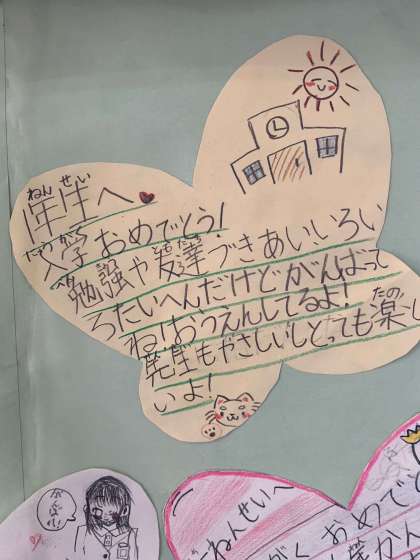 ねん せい
1年生へ
がく
入学おめでとう!
ともだち
勉強や友達づきあい、いろい
ろたいへんだけどがんばって
ね!おうえんしてるよ!
たの
先生もやさしいしとっても楽し
いよ!
ねんせいへ
がく おめでと